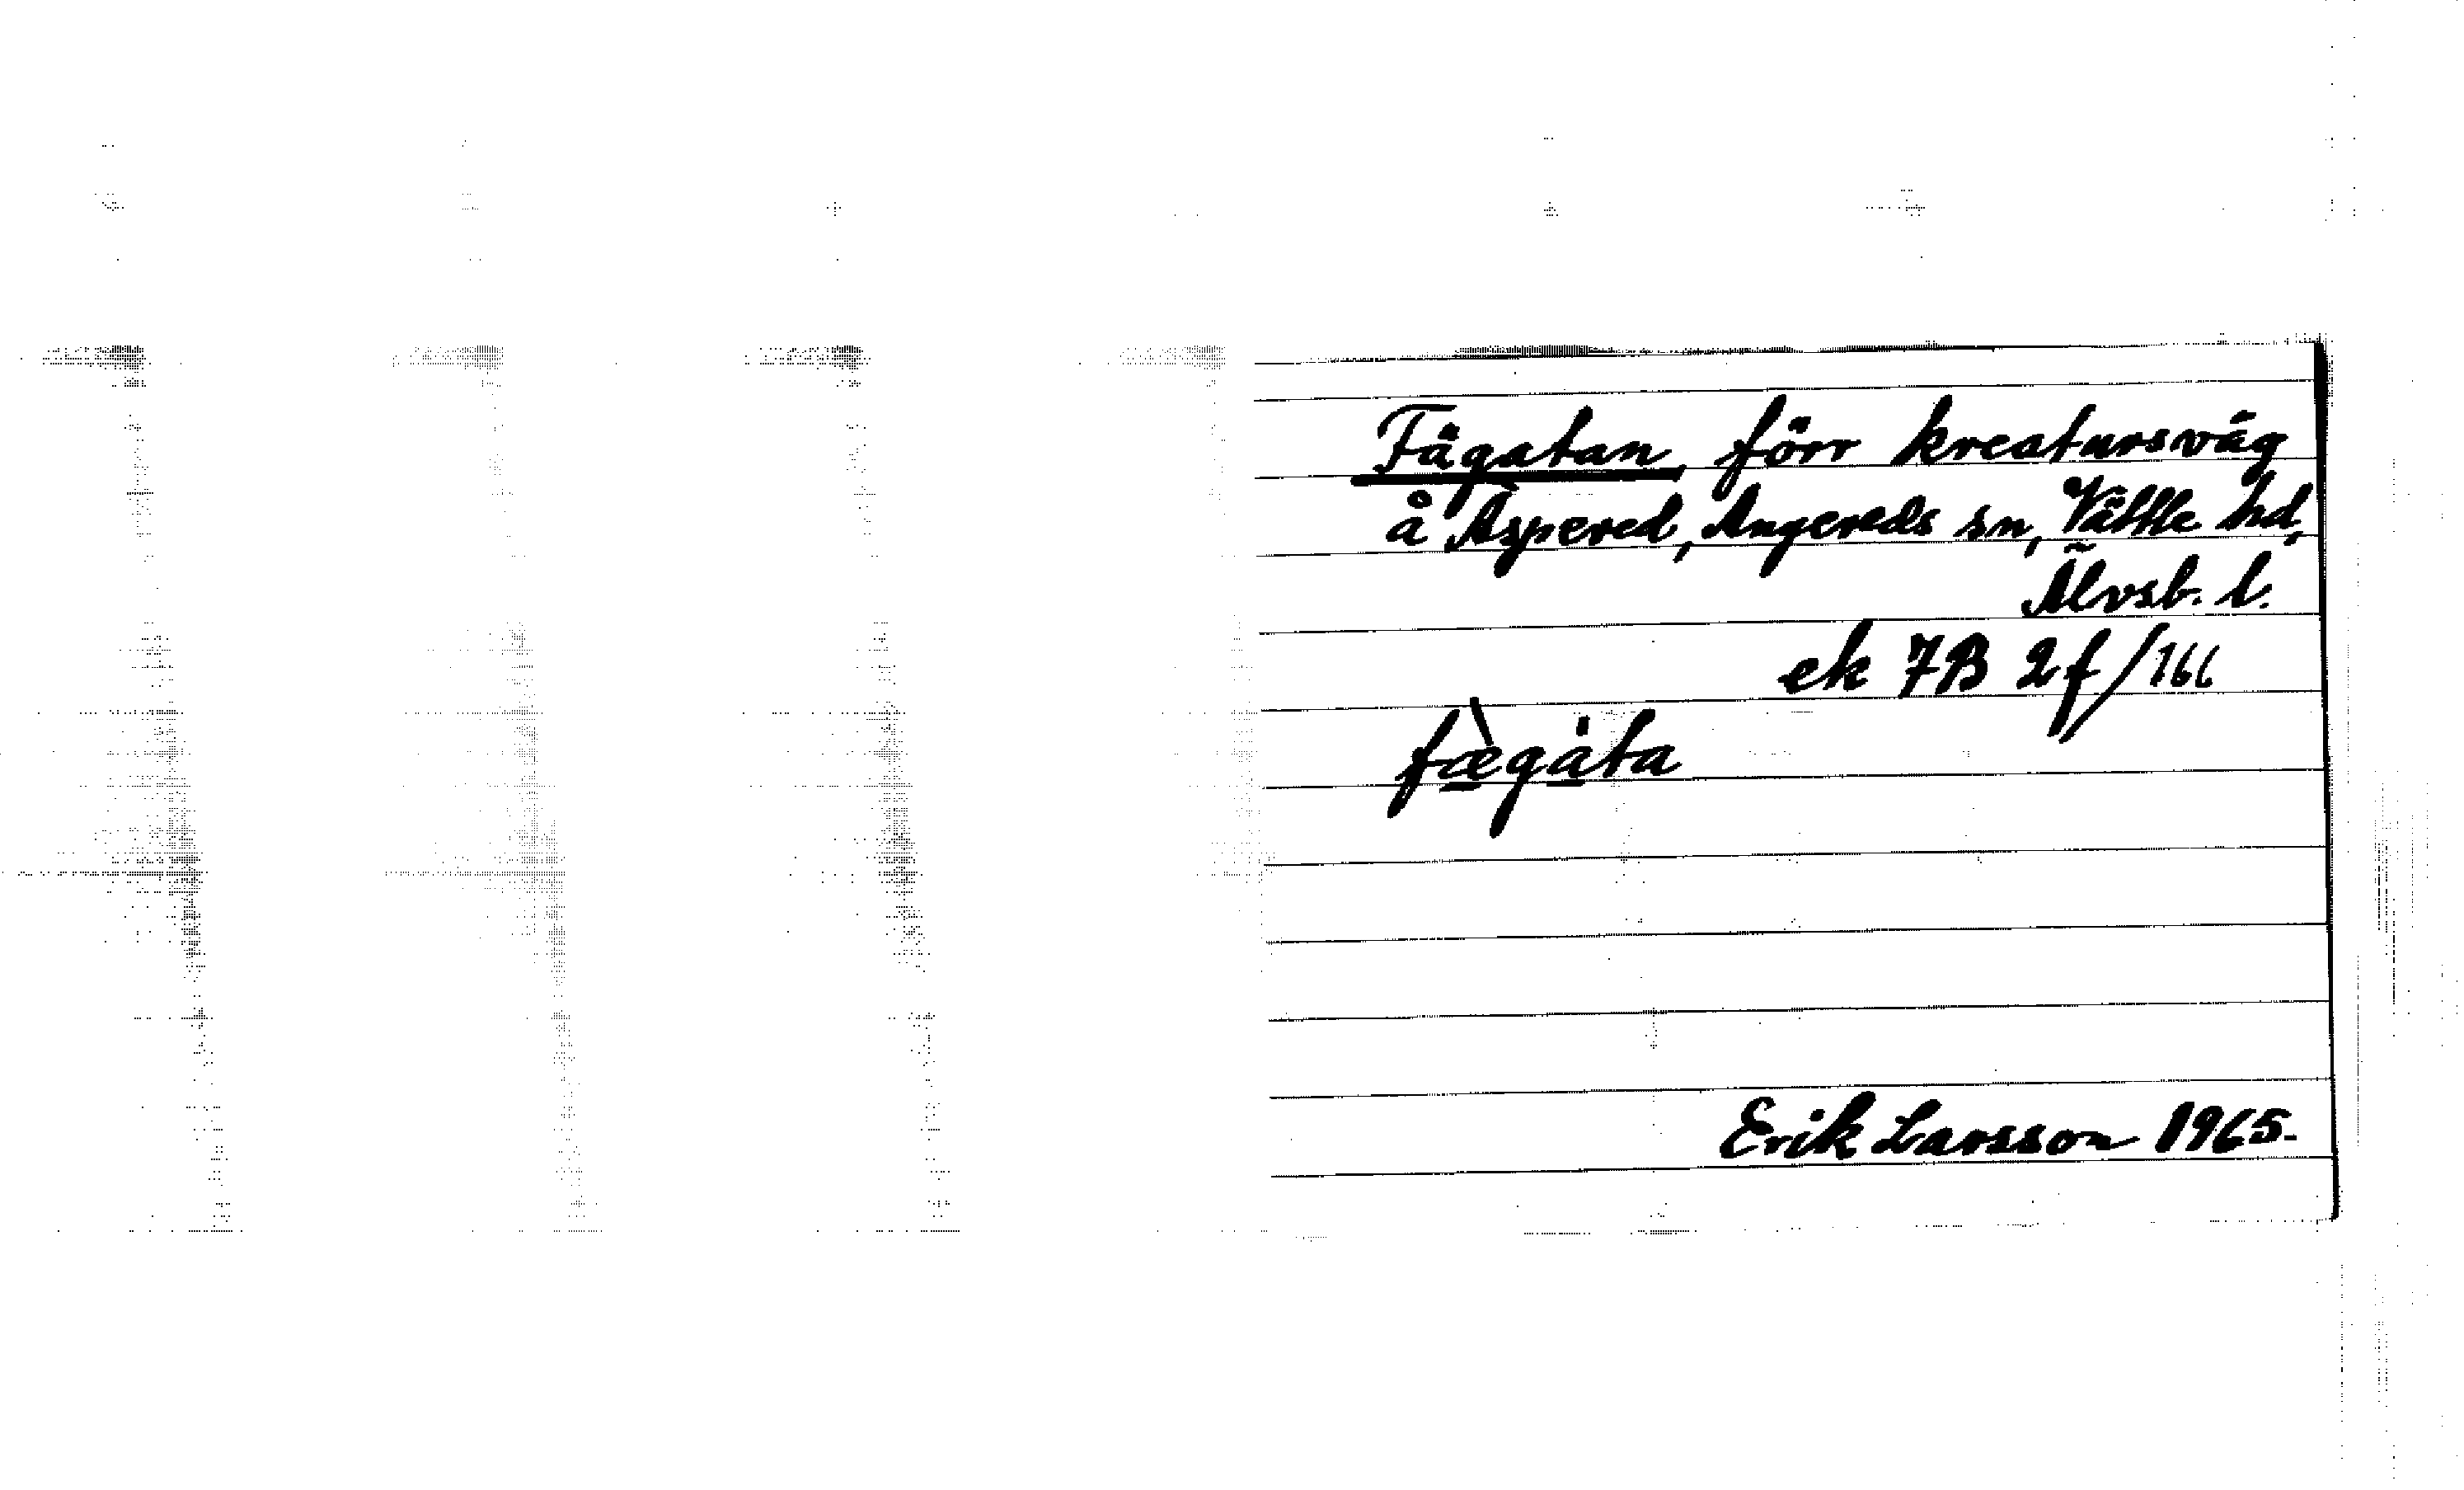 Fägatan, förr kreatursväg
å Aspered, Angereds sn, Vättle hd,
Älvsb. l.
ek 7B 2f/166
fæ̀gȧta
Erik Larsson 1965.